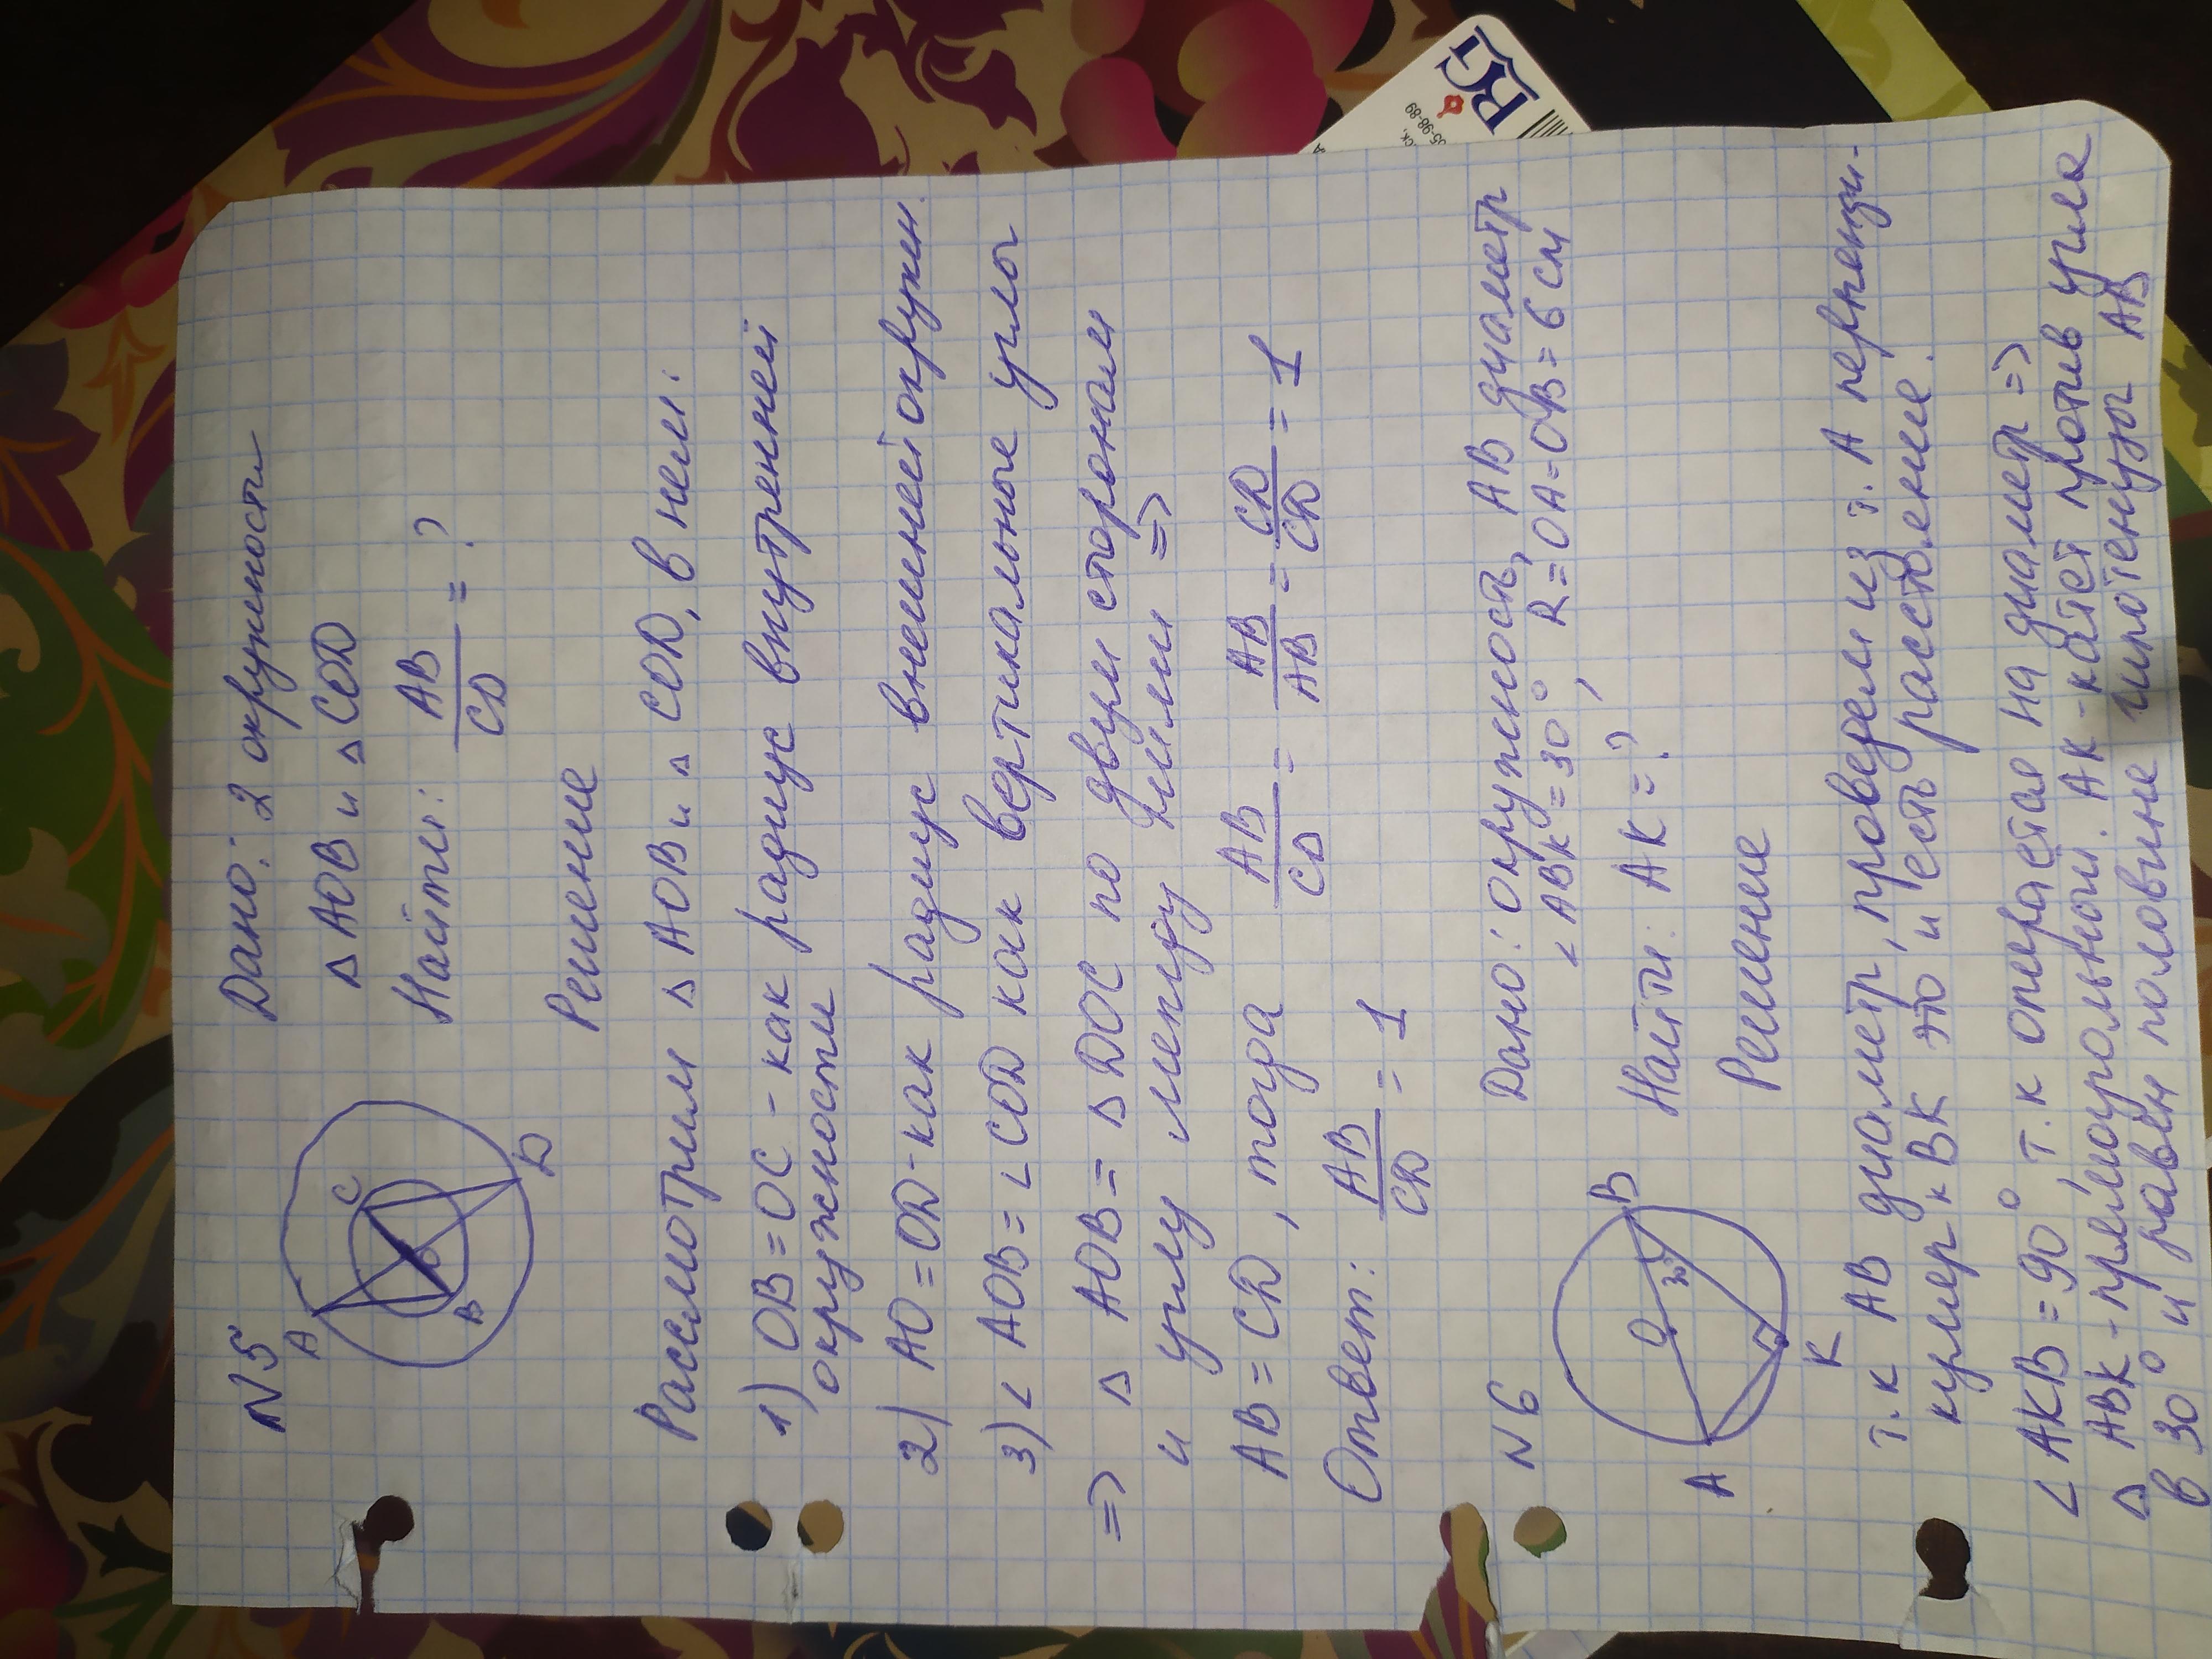 N5
A
C
O
B
D
Дано: 2 окружности
△ AOB и △ COD
Найти: AB/CD = ?
Решение
Рассмотрим △ AOB и △ COD, в нем:
1) OB = OC - как радиус внутренней
окружности
2) AO = OD - как радиус внешней окружн.
3) ∠ AOB = ∠ COD как вертикальные углы
=> △ AOB = △ DOC по двум сторонам
и углу между ними =>
AB = CD, тогда AB/CD = AB/AB = CD/CD = 1
Ответ: AB/CD = 1
N6
A
O
30°
B
K
Дано: окружность, AB диаметр
∠ ABK = 30°, R = OA = OB = 6 см
Найти: AK = ?
Решение
т.к AB диаметр, проведем из т. A перпенди-
куляр к BK это и есть расстоение.
∠ AKB = 90° т.к опирается на диаметр =>
△ ABK - прямоугольный. AK - катет против угла
в 30° и равен половине гипотенузы AB
BG
95-98-89